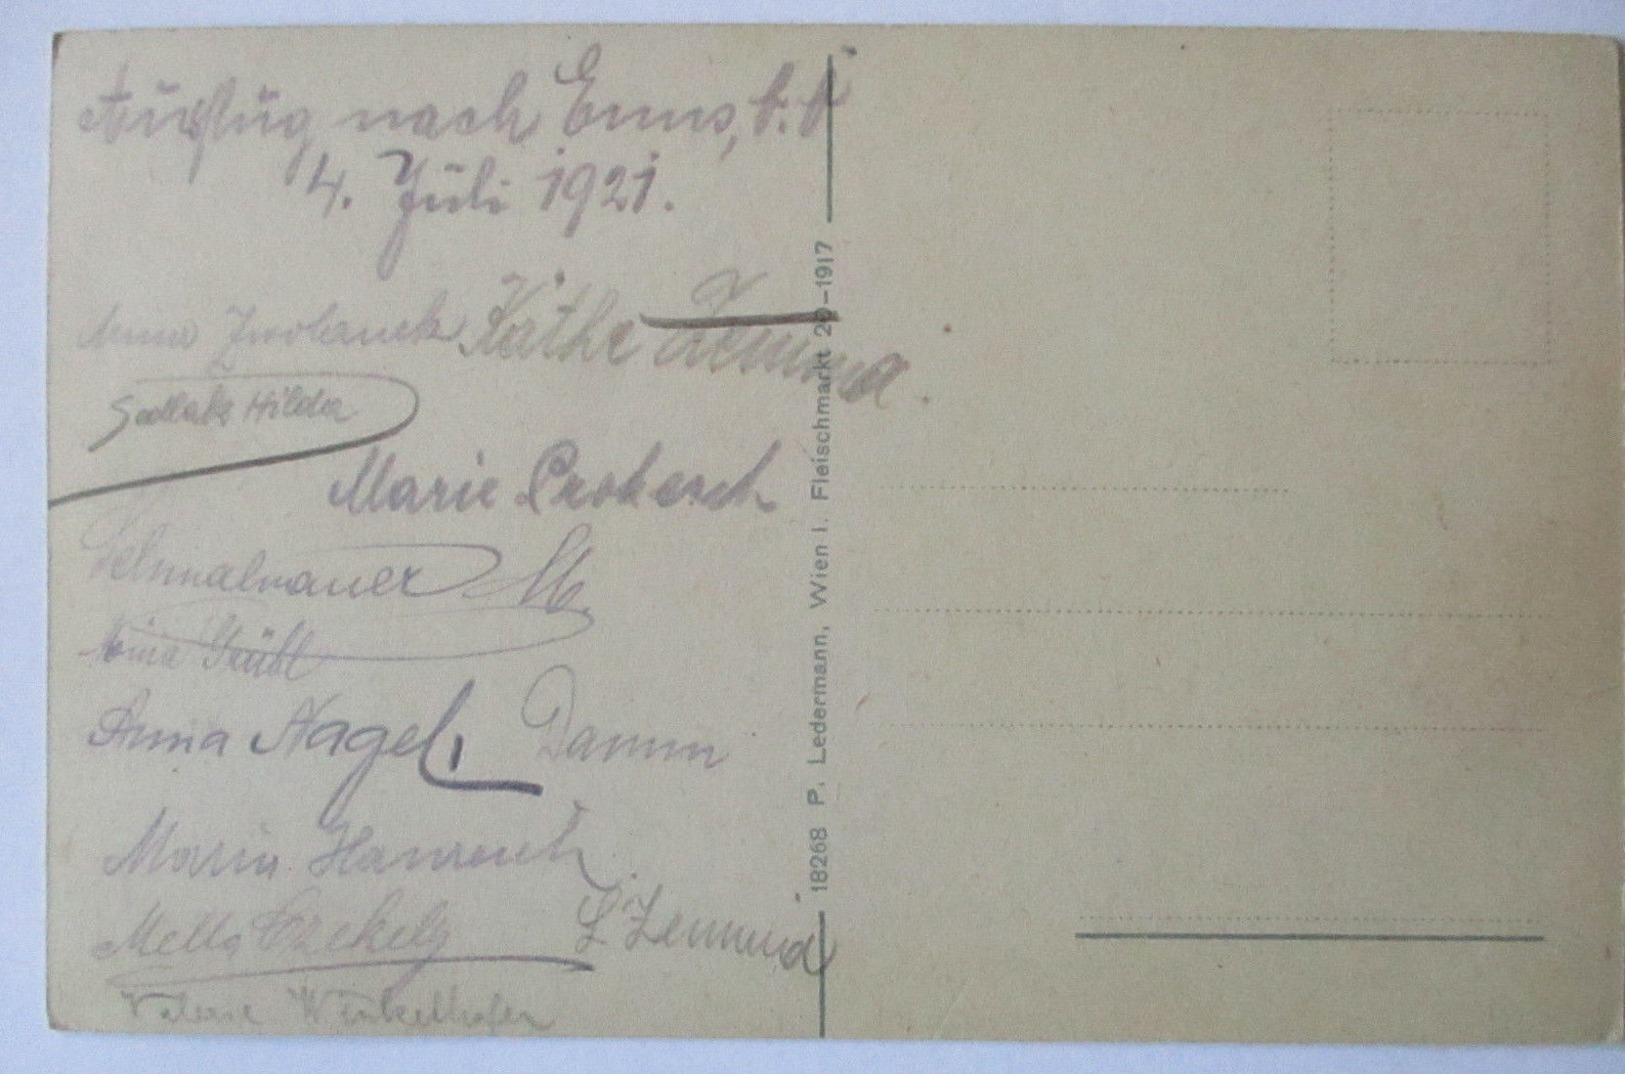 Ausflug nach Enns,
4. Juli 1921.
Käthe Zemma.
Sedlak Hilda
Marie Prokesch
Schmalnauer M.
Mina
Anna Nagel, Damm
Maria
Mella Szekely L. Zemma
Valerie Winkelhofer
18268 P. Ledermann, Wien I. Fleischmarkt 20-1917